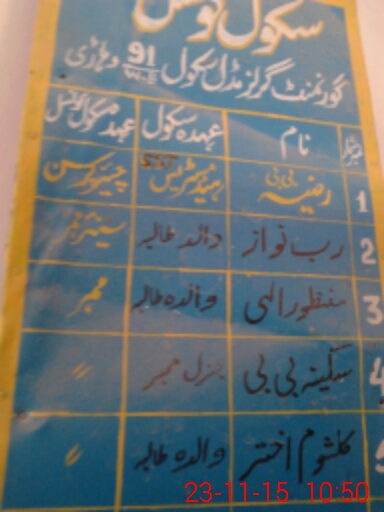 سکول کونسل
گورنمنٹ گرلز مڈل سکول 91 W.B وہاڑی
نام عہدہ سکول عہدہ سکول کونسل
1 رضیہ بی بی SST ہیڈمسٹریس چیئرپرسن
2 رب نواز والد طالبہ سینئر ممبر
3 منظور الہی والدہ طالبہ ممبر
4 سکینہ بی بی جنرل ممبر 〃
5 کلثوم اختر والدہ طالبہ 〃
23-11-15 10:50